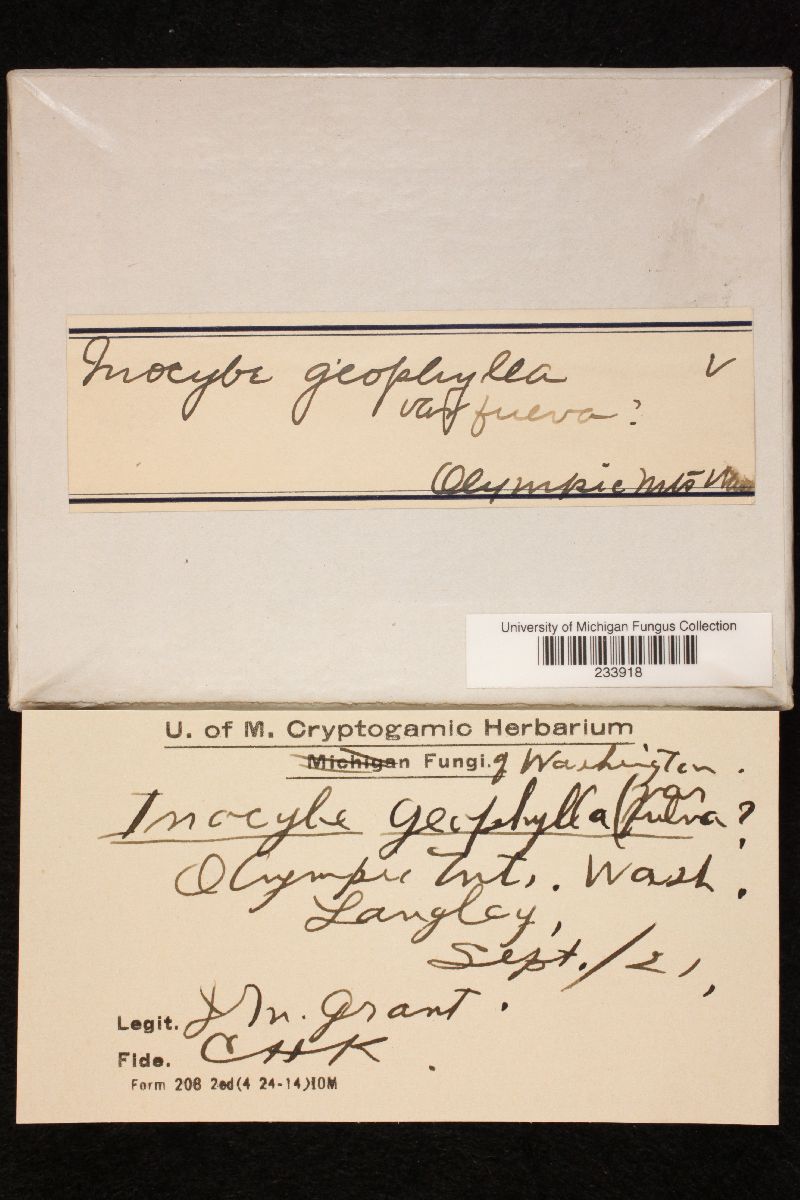 Inocybe geophylla V
var fulva ?
Olympic Mts
University of Michigan Fungus Collection
233918
U. of M. Cryptogamic Herbarium
Michigan Fungi. of Washington.
Inocybe geophylla (var fulva ?
Olympic Mts. Wash.
Langley,
Sept. / 21,
Legit. J M. Grant.
Fide. CHK.
Form 208 2ed(4 24-14)10M